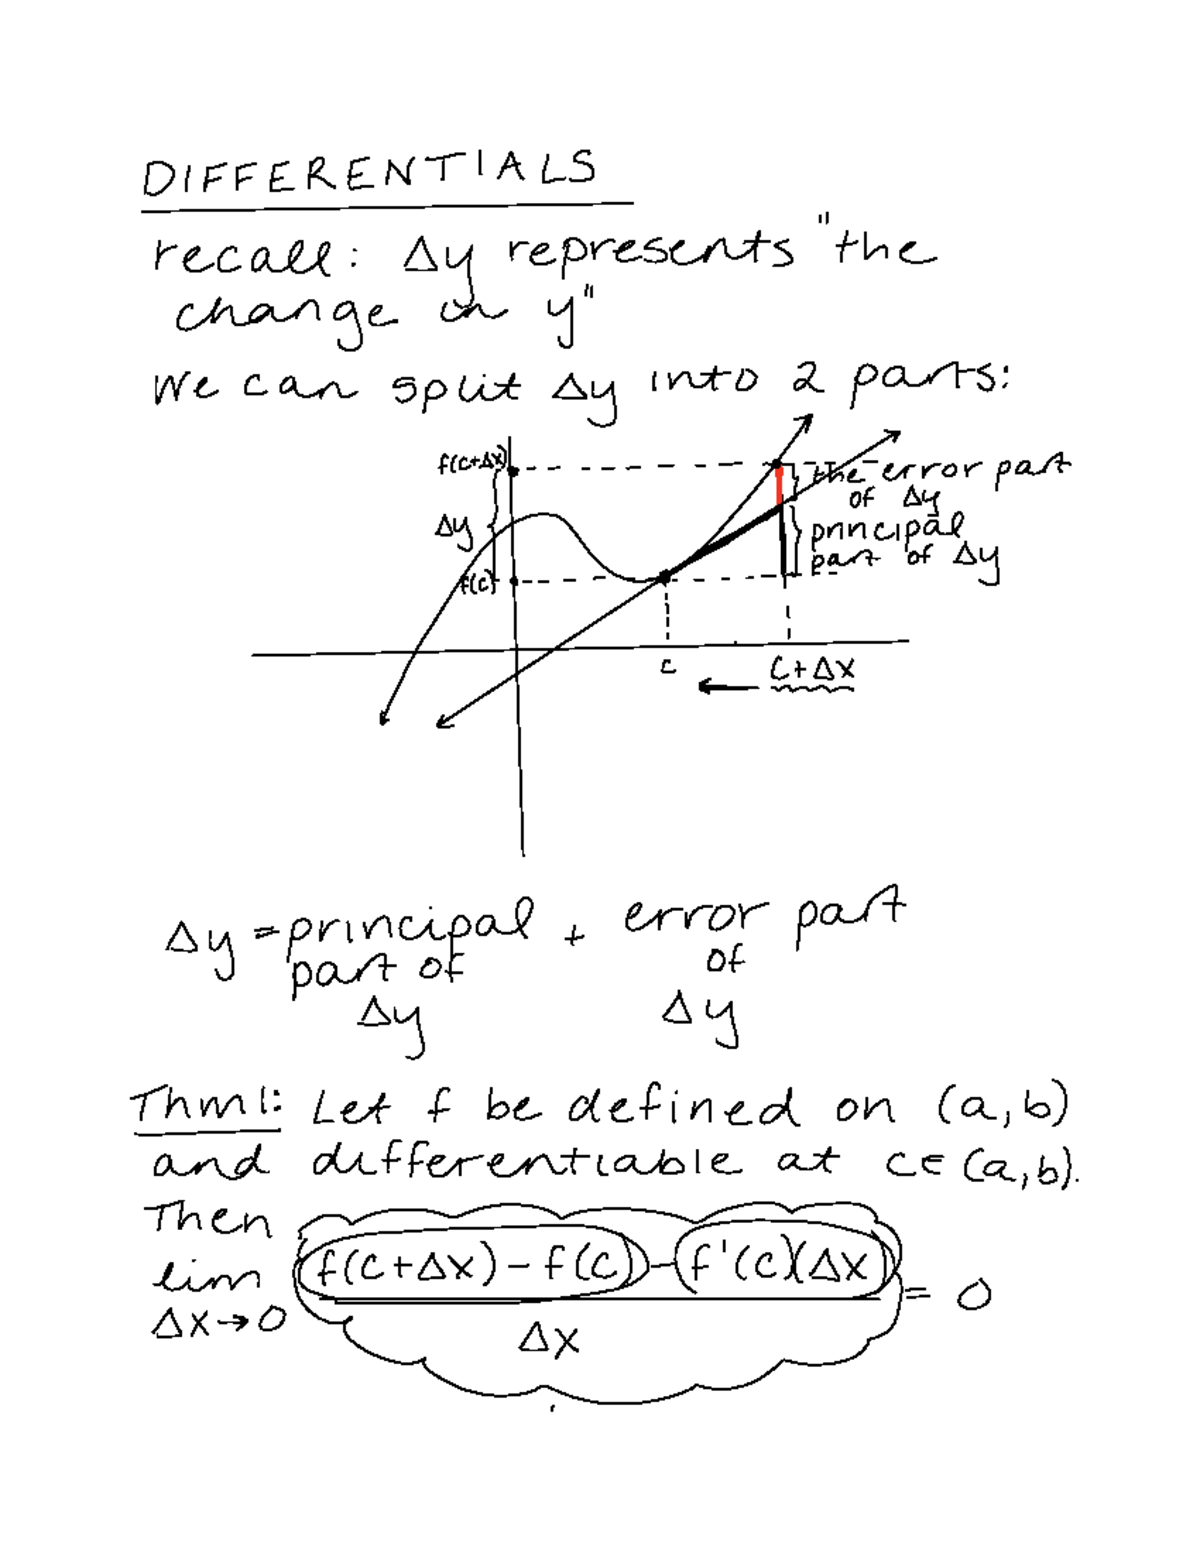 DIFFERENTIALS
recall: Δy represents "the
change in y"
We can split Δy into 2 parts:
f(c+Δx)
the error part
of Δy
Δy
principal
part of Δy
f(c)
c
c+Δx
Δy = principal + error part
part of of
Δy Δy
Thm 1: Let f be defined on (a,b)
and differentiable at c∈(a,b).
Then
lim f(c+Δx) - f(c) - f'(c)(Δx) = 0
Δx→0 Δx